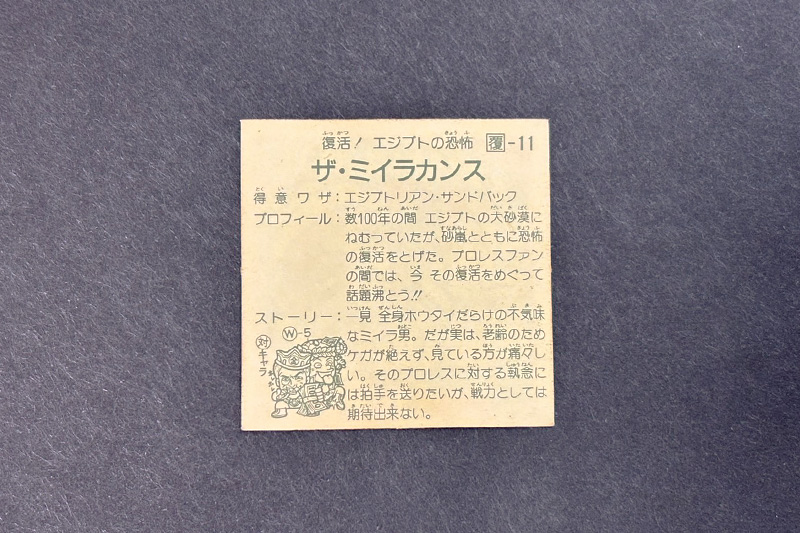 復活! エジプトの恐怖 覆-11
ザ・ミイラカンス
得意ワザ:エジプトリアン・サンドバック
プロフィール:数100年の間 エジプトの大砂漠に
ねむっていたが、砂嵐とともに恐怖
の復活をとげた。プロレスファン
の間では、今 その復活をめぐって
話題沸とう!!
ストーリー:一見 全身ホウタイだらけの不気味
なミイラ男。だが実は、老齢のため
ケガが絶えず、見ている方が痛々し
い。そのプロレスに対する執念に
は拍手を送りたいが、戦力としては
期待出来ない。
W-5
対キャラ